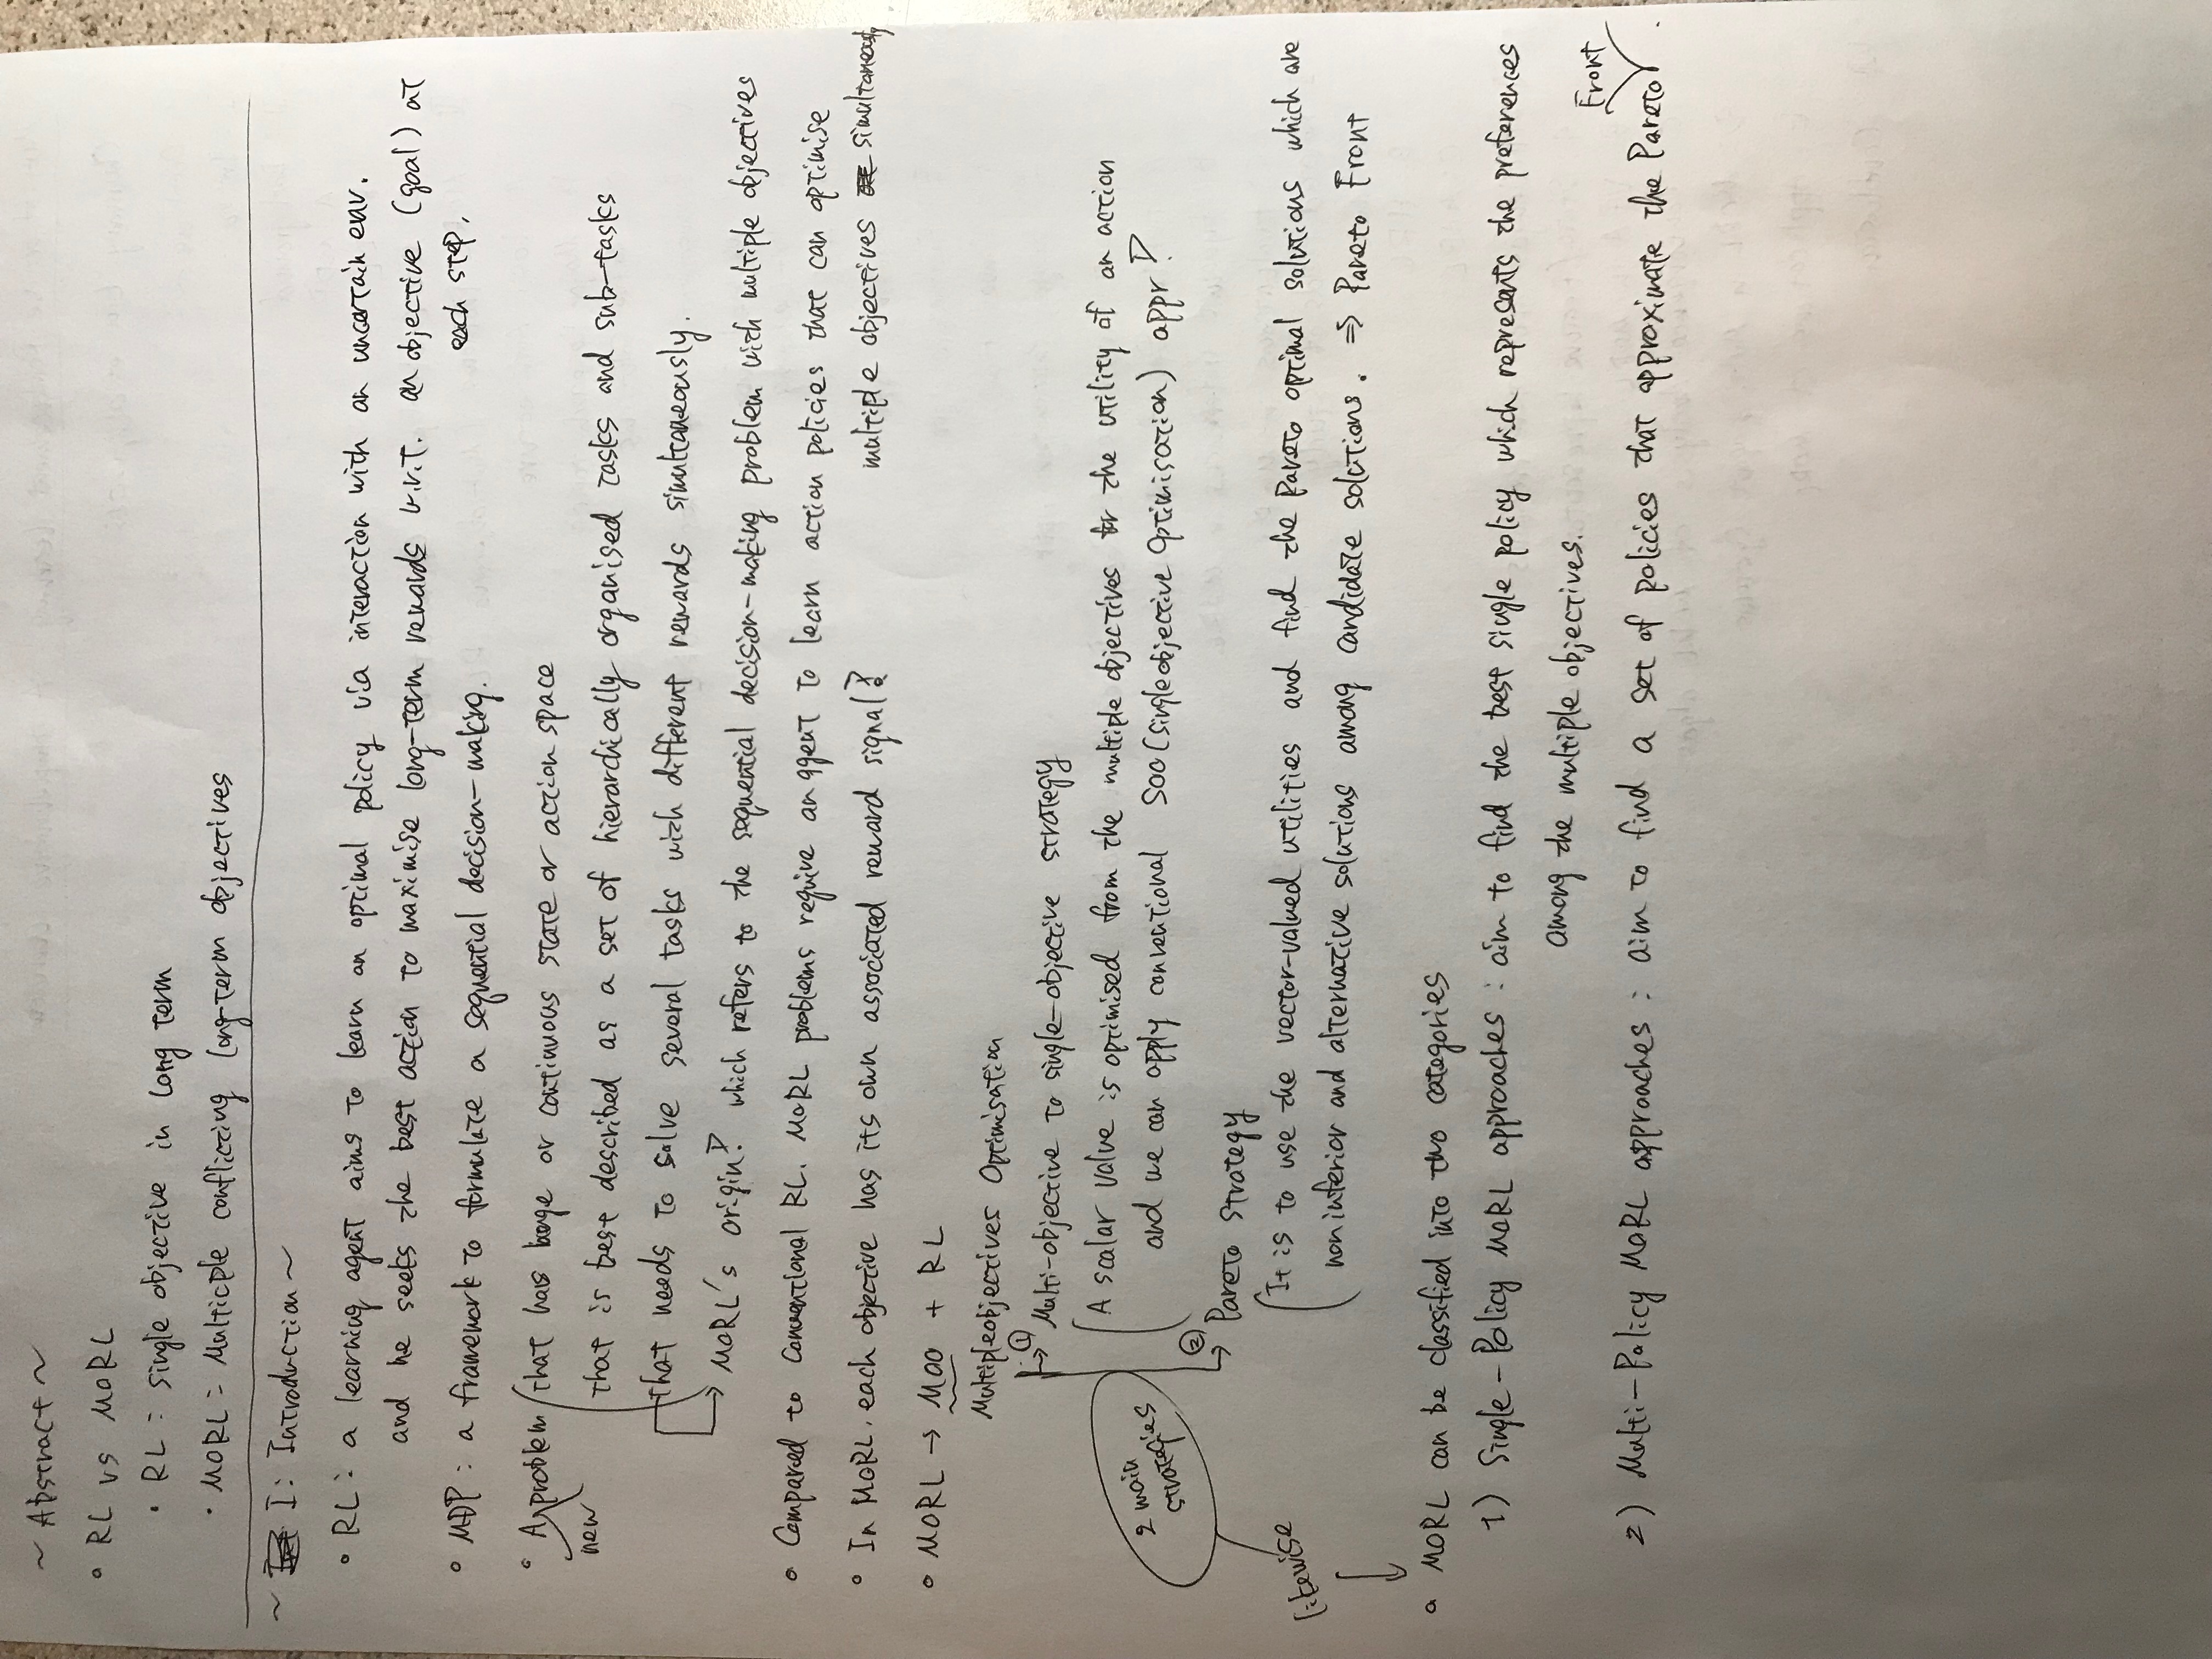 ~ Abstract ~
• RL vs MORL
• RL : single objective in long term
• MORL : Multicple conflicting long-term objectives
~ I : Introduction ~
• RL : a learning agent aims to learn an optimal policy via interaction with an uncertain env.
and he seeks the best action to maximise long-term rewards w.r.t. an objective (goal) at
each step.
• MDP : a framework to formulate a sequential decision-making.
• A problem that has large or continuous state or action space
new
that is best described as a set of hierarchically organised tasks and sub-tasks
that needs to solve several tasks with different rewards simultaneously.
→ MORL's origin! which refers to the sequential decision-making problem with multiple objectives
• Compared to conventional RL. MORL problems require an agent to learn action policies that can optimise
multiple objectives simultaneously
• In MORL, each objective has its own associated reward signal!
• MORL → MOO + RL
Multipleobjectives Optimisation
→ ① Multi-objective to single-objective strategy
(A scalar value is optimised from the multiple objectives for the utility of an action
and we can apply conventional SOO (singleobjective Optimisation) appr!
2 main
strategies
→ ② Pareto strategy
(It is to use the vector-valued utilities and find the Pareto optimal solutions which are
non inferior and alternative solutions among candidate solutions. ⇒ Pareto Front
likewise
• MORL can be classified into two categories
1) Single-Policy MORL approaches : aim to find the best single policy which represents the preferences
among the multiple objectives.
Front
2) Multi-Policy MORL approaches : aim to find a set of policies that approximate the Pareto .